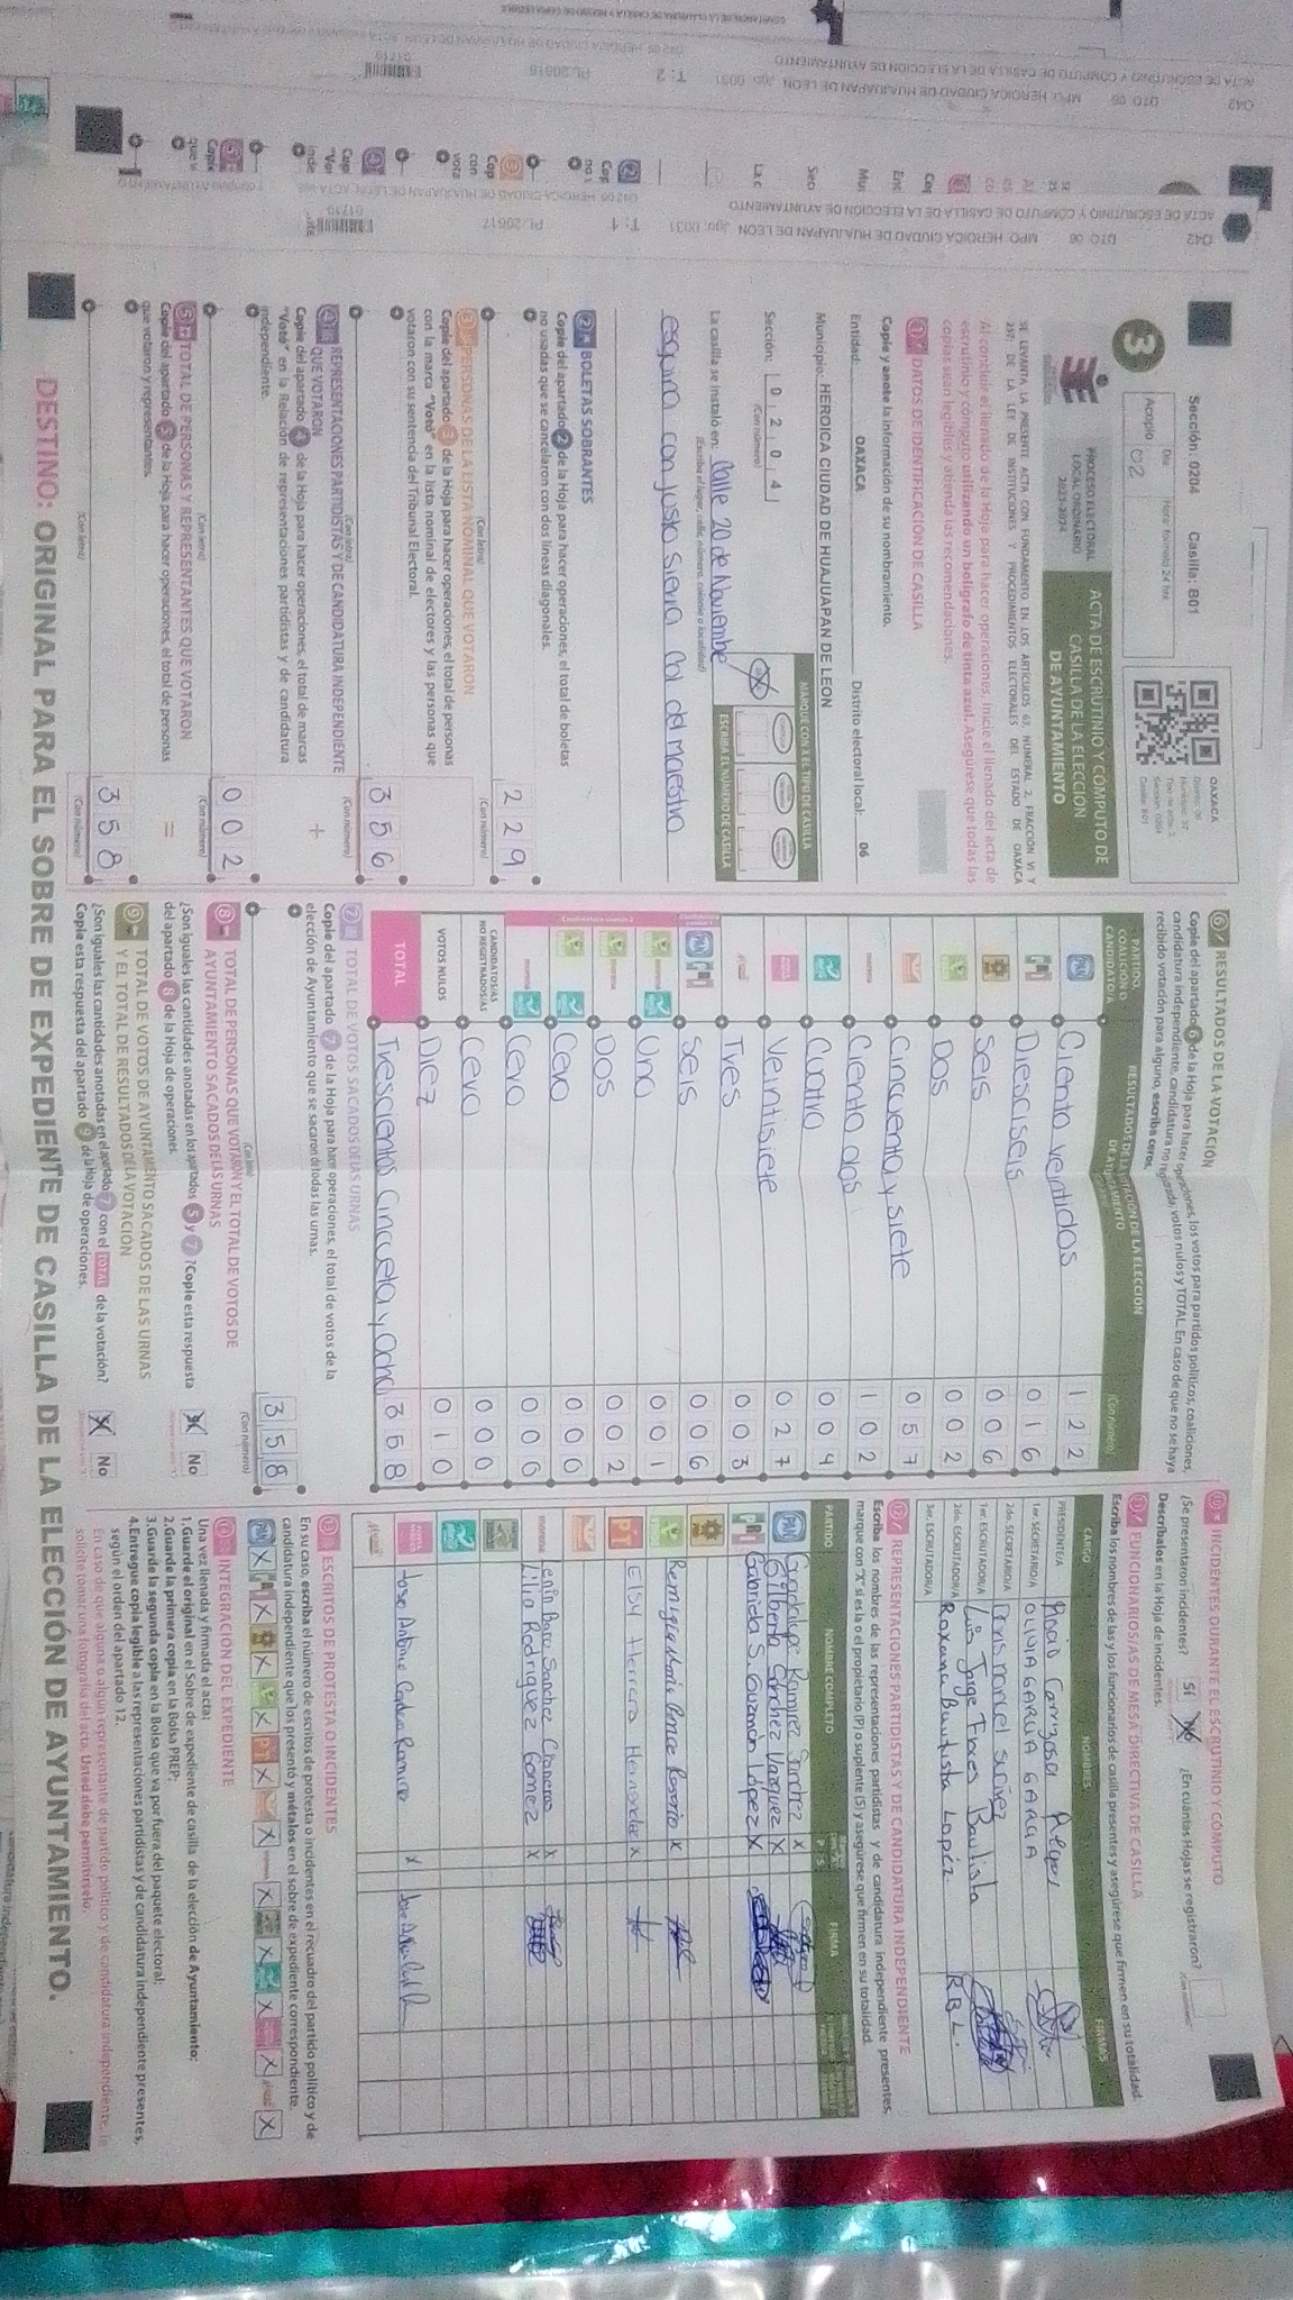 Sección: 0204 Casilla: B01
3
Acopio
Día
Hora: formato 24 hrs
02
OAXACA
PROCESO ELECTORAL
LOCAL ORDINARIO
2023-2024
ACTA DE ESCRUTINIO Y CÓMPUTO DE
CASILLA DE LA ELECCIÓN
DE AYUNTAMIENTO
SE LEVANTA LA PRESENTE ACTA CON FUNDAMENTO EN LOS ARTÍCULOS 67, NUMERAL 2, FRACCIÓN VI Y
257; DE LA LEY DE INSTITUCIONES Y PROCEDIMIENTOS ELECTORALES DEL ESTADO DE OAXACA
Al concluir el llenado de la Hoja para hacer operaciones, inicie el llenado del acta de
escrutinio y cómputo utilizando un bolígrafo de tinta azul. Asegúrese que todas las
copias sean legibles y atienda las recomendaciones.
1 DATOS DE IDENTIFICACIÓN DE CASILLA
Copie y anote la información de su nombramiento.
Entidad: OAXACA Distrito electoral local: 06
Municipio: HEROICA CIUDAD DE HUAJUAPAN DE LEON
Sección: 0 2 0 4
(Con número)
MARQUE CON X EL TIPO DE CASILLA
ESCRIBA EL NÚMERO DE CASILLA
La casilla se instaló en: Calle 20 de Noviembre
(Escriba el lugar, calle, número, colonia o localidad)
esquina con justo sierra col del maestro
2 BOLETAS SOBRANTES
Copie del apartado 2 de la Hoja para hacer operaciones, el total de boletas
no usadas que se cancelaron con dos líneas diagonales.
2 2 9
(Con letra) (Con número)
3 PERSONAS DE LA LISTA NOMINAL QUE VOTARON
Copie del apartado 3 de la Hoja para hacer operaciones, el total de personas
con la marca "Votó" en la lista nominal de electores y las personas que
votaron con su sentencia del Tribunal Electoral.
3 5 6
(Con letra) (Con número)
4 REPRESENTACIONES PARTIDISTAS Y DE CANDIDATURA INDEPENDIENTE
QUE VOTARON
+
Copie del apartado 4 de la Hoja para hacer operaciones, el total de marcas
"Votó" en la Relación de representaciones partidistas y de candidatura
independiente.
0 0 2
(Con letra) (Con número)
5 TOTAL DE PERSONAS Y REPRESENTANTES QUE VOTARON
=
Copie del apartado 5 de la Hoja para hacer operaciones, el total de personas
que votaron y representantes.
3 5 8
(Con letra) (Con número)
6 RESULTADOS DE LA VOTACIÓN
Copie del apartado 6 de la Hoja para hacer operaciones, los votos para partidos políticos, coaliciones,
candidatura independiente, candidatura no registrada, votos nulos y TOTAL. En caso de que no se haya
recibido votación para alguno, escriba ceros.
PARTIDO, COALICIÓN O CANDIDATO/A
RESULTADOS DE LA VOTACIÓN DE LA ELECCIÓN DE AYUNTAMIENTO
(Con número)
PAN Ciento veintidos 1 2 2
PRI Diesciseis 0 1 6
Seis 0 0 6
Dos 0 0 2
Cincuenta y siete 0 5 7
morena Ciento dos 1 0 2
Cuatro 0 0 4
Veintisiete 0 2 7
Tres 0 0 3
PAN PRI Seis 0 0 6
Uno 0 0 1
Dos 0 0 2
Cero 0 0 0
Cero 0 0 0
CANDIDATOS/AS NO REGISTRADOS/AS Cero 0 0 0
VOTOS NULOS Diez 0 1 0
TOTAL Trescientos Cincueta y Ocho 3 5 8
7 TOTAL DE VOTOS SACADOS DE LAS URNAS
Copie del apartado 7 de la Hoja para hacer operaciones, el total de votos de la
elección de Ayuntamiento que se sacaron de todas las urnas.
3 5 8
(Con letra) (Con número)
8 TOTAL DE PERSONAS QUE VOTARON Y EL TOTAL DE VOTOS DE
AYUNTAMIENTO SACADOS DE LAS URNAS
¿Son iguales las cantidades anotadas en los apartados 5 y 7? Copie esta respuesta
del apartado 8 de la Hoja de operaciones.
No
9 TOTAL DE VOTOS DE AYUNTAMIENTO SACADOS DE LAS URNAS
Y EL TOTAL DE RESULTADOS DE LA VOTACIÓN
¿Son iguales las cantidades anotadas en el apartado 7 con el TOTAL de la votación?
Copie esta respuesta del apartado 9 de la Hoja de operaciones.
No
10 INCIDENTES DURANTE EL ESCRUTINIO Y CÓMPUTO
¿Se presentaron incidentes? Sí No ¿En cuántas Hojas se registraron?
Descríbalos en la Hoja de Incidentes.
11 FUNCIONARIOS/AS DE MESA DIRECTIVA DE CASILLA
Escriba los nombres de las y los funcionarios de casilla presentes y asegúrese que firmen en su totalidad.
CARGO NOMBRES FIRMAS
PRESIDENTE/A Rocio Carrizosa
1er. SECRETARIO/A OLIVIA GARCIA GARCIA
2do. SECRETARIO/A
1er. ESCRUTADOR/A Luis Jorge Flores Bautista
2do. ESCRUTADOR/A Roxana Bautista Lopéz R.B.L.
3er. ESCRUTADOR/A
12 REPRESENTACIONES PARTIDISTAS Y DE CANDIDATURA INDEPENDIENTE
Escriba los nombres de las representaciones partidistas y de candidatura independiente presentes,
marque con "X" si es la o el propietario (P) o suplente (S) y asegúrese que firmen en su totalidad.
PARTIDO NOMBRE COMPLETO P S FIRMA
PAN Guadalupe Ramirez Sanchez X
Gilberto Sánchez Vazquez X
PRI Gabriela S. Guzmán López X
Ponce Rosario X
PT Elsy Herrera Hernandez X
morena Lenin Sanchez Cisneros X
Lilia Rodriguez Gomez X
Jose Antonio Cordova Ramirez X
13 ESCRITOS DE PROTESTA O INCIDENTES
En su caso, escriba el número de escritos de protesta o incidentes en el recuadro del partido político y de
candidatura independiente que los presentó y métalos en el sobre de expediente correspondiente.
PAN X PRI X X X PT X X morena X X X X X
14 INTEGRACIÓN DEL EXPEDIENTE
Una vez llenada y firmada el acta:
1. Guarde el original en el Sobre de expediente de casilla de la elección de Ayuntamiento;
2. Guarde la primera copia en la Bolsa PREP;
3. Guarde la segunda copia en la Bolsa que va por fuera del paquete electoral;
4. Entregue copia legible a las representaciones partidistas y de candidatura independiente presentes,
según el orden del apartado 12.
En caso de que alguna o algún representante de partido político y de candidatura independiente, le
solicite tomar una fotografía del acta, Usted debe permitírselo.
DESTINO: ORIGINAL PARA EL SOBRE DE EXPEDIENTE DE CASILLA DE LA ELECCIÓN DE AYUNTAMIENTO.
042 DTO. 06 MPO. HEROICA CIUDAD DE HUAJUAPAN DE LEON
ACTA DE ESCRUTINIO Y COMPUTO DE CASILLA DE LA ELECCION DE AYUNTAMIENTO
T: 1 PL:20617
01719
042 DTO. 06 MPO. HEROICA CIUDAD DE HUAJUAPAN DE LEON
ACTA DE ESCRUTINIO Y COMPUTO DE CASILLA DE LA ELECCION DE AYUNTAMIENTO
T: 2